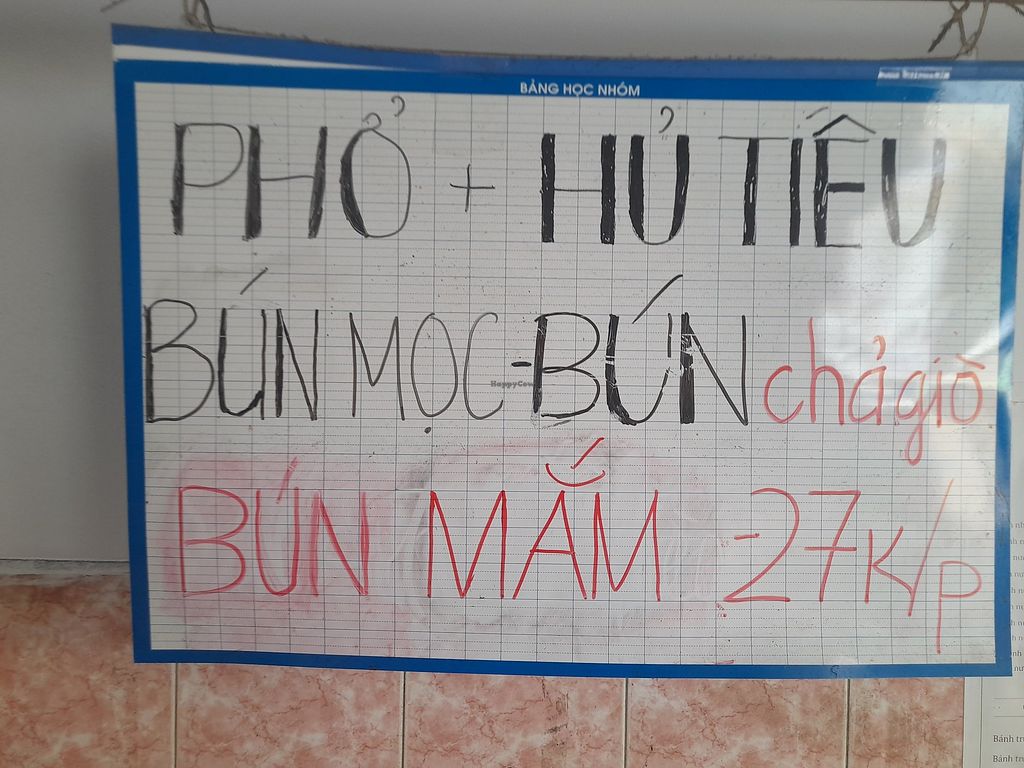 BẢNG HỌC NHÓM
PHỞ + HỦ TIÊU
BÚN MỌC-BÚN chả giò
BÚN MẮM -27K/P
HappyCow
Bánh tr
Bánh tr